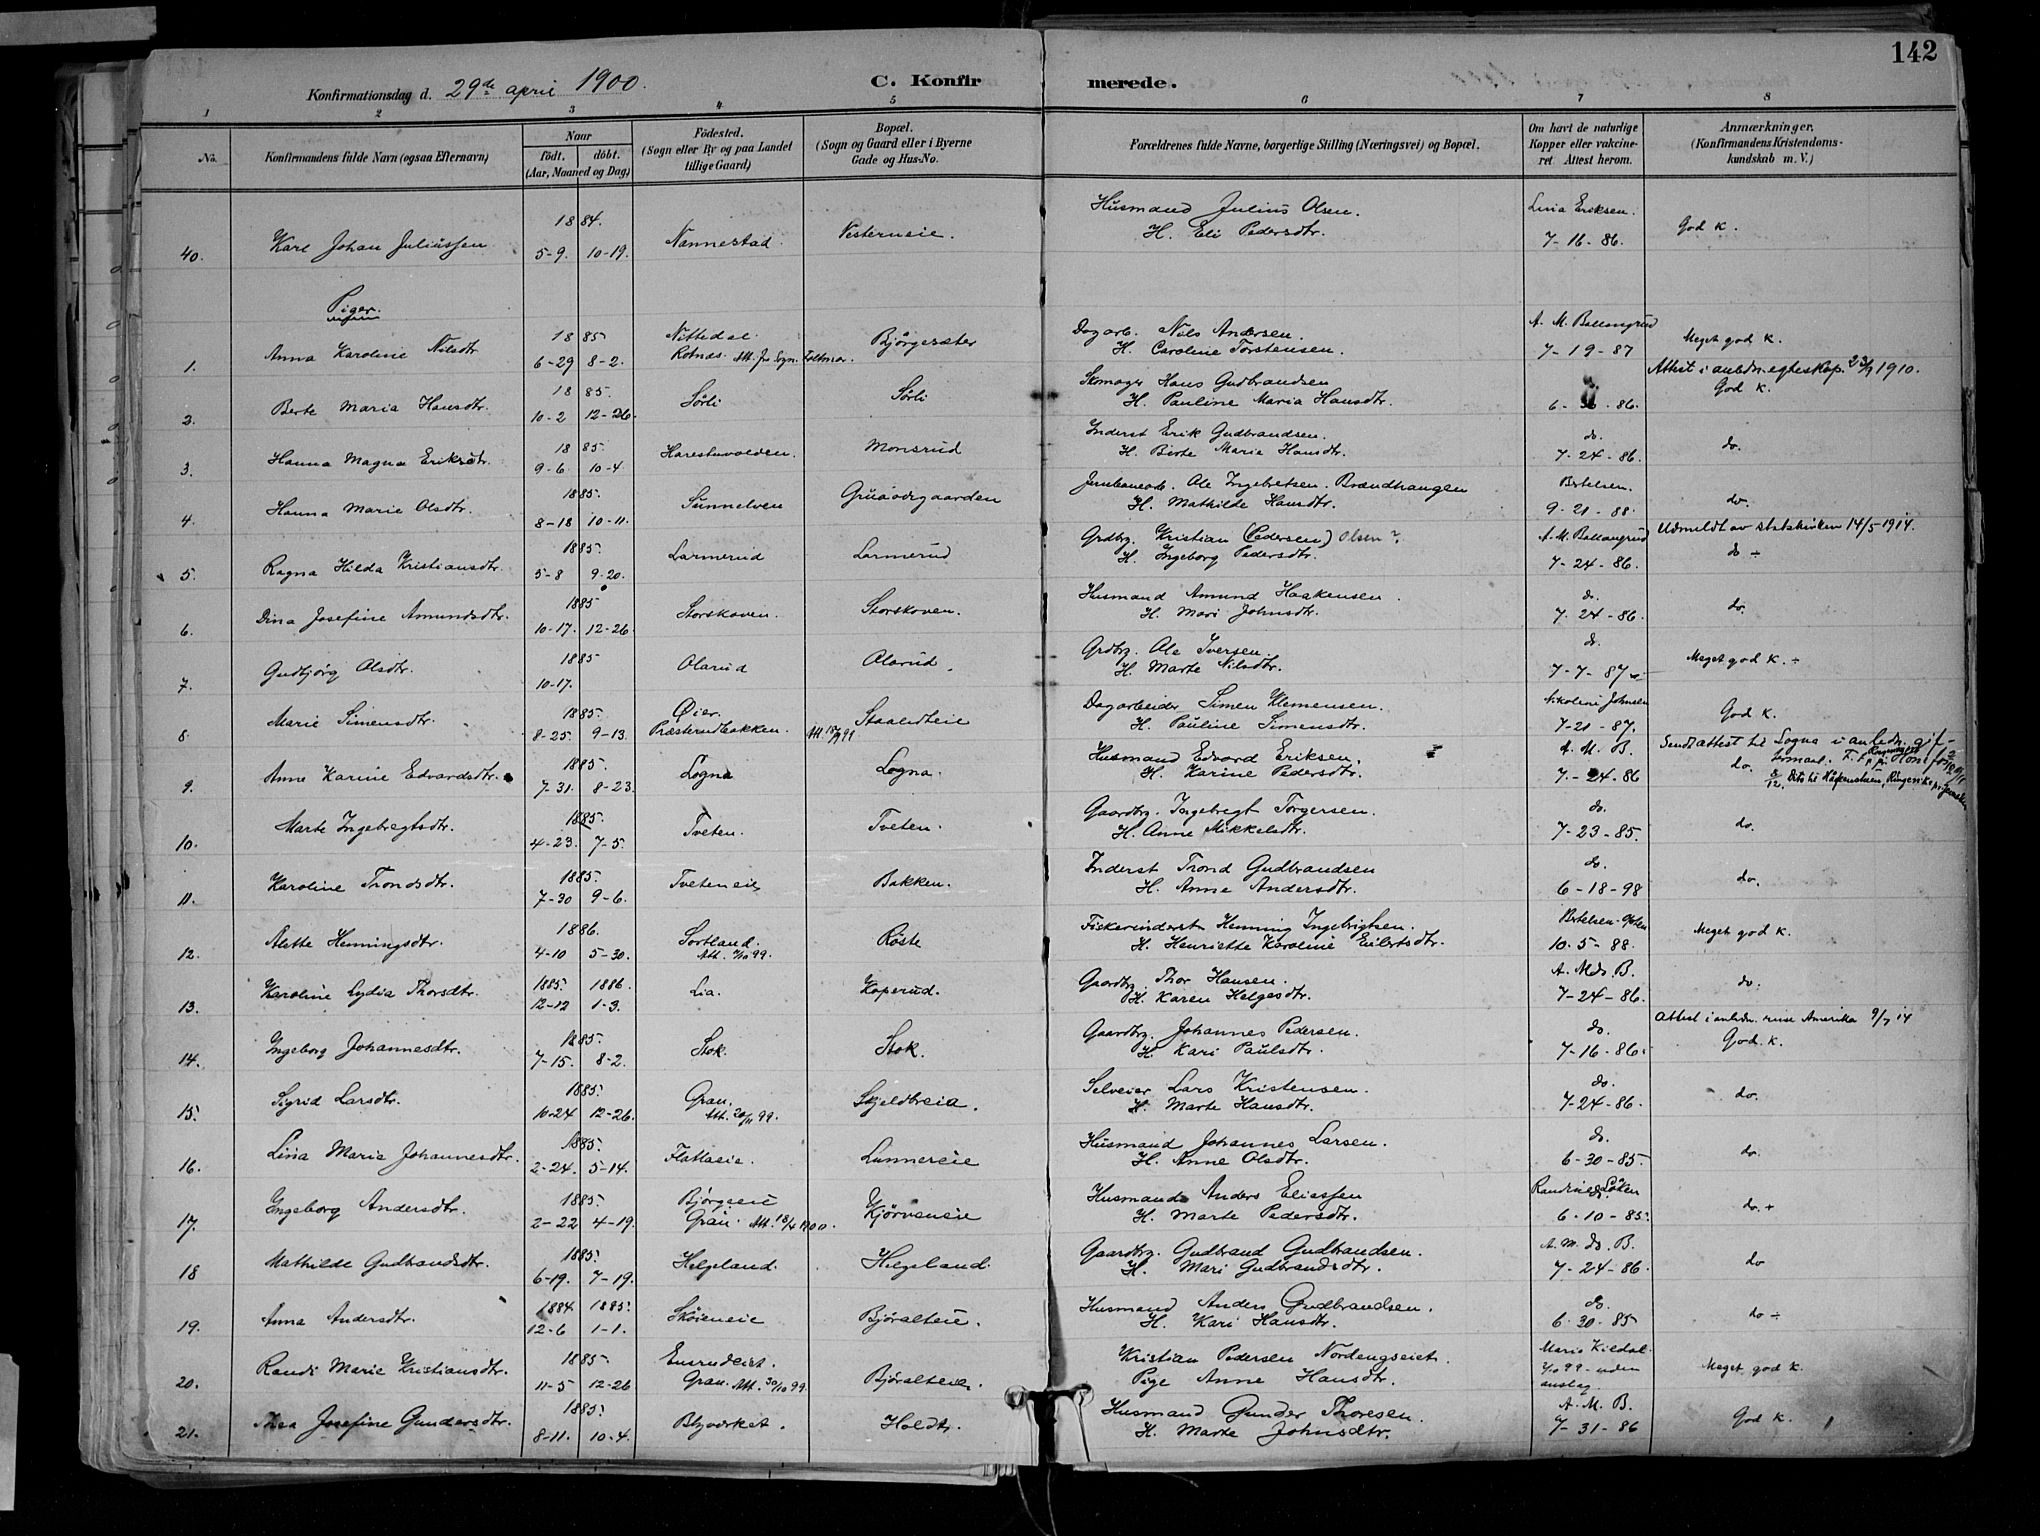 142
Konfirmationsdag d. 29de april 1900.
C. Konfirmerede.
1 2 3 4 5 6 7 8
No. Konfirmandens fulde Navn (ogsaa Efternavn) Naar födt. döbt. (Aar, Maaned og Dag) Födested. (Sogn eller By og paa Landet tillige Gaard) Bopæl. (Sogn og Gaard eller i Byerne Gade og Hus-No. Forældrenes fulde Navne, borgerlige Stilling (Næringsvei) og Bopæl. Om havt de naturlige Kopper eller vakcineret. Attest herom. Anmærkninger. (Konfirmandens Kristendomskundskab m. V.)
40. Karl Johan Juliussen 1884. 5-9. 10-19. Nannestad. Vesterneie. Husmand Julius Olsen. H. Eli Pedersdtr. Lina Eriksen. 7-16-86. God k.
Piger.
1. Anna Karoline Nilsdtr 1885 6-29 8-2. Nittedal Rotnæs. Att. fr Sgn. Bjørgesæter Dagarb. Nils Andersen. H. Caroline Torstensen. A. M. Ballangrud 7-19-87 Meget god k.
2. Berte Maria Hansdtr. 1885. 10-2 12-26. Sørli Sørli Skomager Hans Gudbrandsen H. Pauline Maria Hansdtr. 6-30-86. Attest i anledn. egteskap. 23/9 1910. God k.
3. Hanna Magna Eriksdtr. 1885 9-6. 10-4 Harestuvolden. Monsrud Inderst Erik Gudbrandsen. H. Birte Marie Hansdtr. do. 7-24-86. do.
4. Hanna Marie Olsdtr. 1885. 8-18 10-11. Sunnelven Gruaovrgaarden Jernbanearb. Ole Ingebretsen. Brændhaugen H. Mathilde Hansdtr. Bertelsen. 9-21-88. do.
5. Ragna Hilda Kristiansdtr. 1885. 5-8 9-20. Larmerud Larmerud Grdbrg. Kristian (Pedersen) Olsen? H. Ingeborg Pedersdtr. A. M. Ballangrud 7-24-86. Udmeldt av statskirken 14/5-1914. do ÷
6. Dina Josefine Amundsdtr. 1885 10-17. 12-26. Storskoven. Storskoven. Husmand Amund Haakensen. H. Mari Johnsdtr. do. 7-24-86. do.
7. Gudbjørg Olsdtr. 1885 10-17. Olarud Olarud. Grdbrg. Ole Iversen. H. Marte Nilsdtr. do. 7-7-87 Meget god k. ÷
8. Marie Simensdtr. 1885. 8-25. 9-13. Øier. Præsterudbakken. Staaledteie Dagarbeider Simen Klemensen. H. Pauline Simensdtr. Nikoline Johnsen 7-21-87. God k.
9. Anne Karine Edvardsdtr. 1885. 7-31. 8-23. Logna Logna. Husmand Edvard Eriksen. H. Karine Pedersdtr. A. M. B. 7-24-86 Sendt attest til Sogna i anledn. gif- do.
10. Marte Ingebregtsdtr. 1885. 4-23. 7-5. Tveten. Tveten. Gaardbrg. Ingebregt Torgersen. H. Anne Mikkelsdtr. do. 7-23-85. do.
11. Karoline Trondsdtr. 1885. 7-30 9-6. Tveteneie Bakken. Inderst Trond Gudbrandsen H. Anne Andersdtr. do. 6-18-98 do.
12. Alette Henningsdtr. 1886. 4-10 5-30. Sortland. Røste Fiskerinderst Henning Ingebrigtsen. H. Henriette Karoline Eilertsdtr. Bertelsen 10-5-88. Meget god k.
13. Karoline Lydia Thorsdtr. 1885. 1886. 12-12 1-3. Lia. Koperud. Gaardbrg. Thor Hansen. H. Karen Helgesdtr. A. Mds. B. 7-24-86. do.
14. Ingeborg Johannesdtr. 1885. 7-15. 8-2. Stok. Stok. Gaardbrg. Johannes Pedersen. H. Kari Paulsdtr. do. 7-16-86. Attest i anledn. reise Amerika 9/7 14 God. k.
15. Sigrid Larsdtr. 1885. 10-24 12-26. Gran. Att. 20/11 99. Skjeldbreia. Selveier Lars Kristensen. H. Marte Hansdtr. do. 7-24-86. do.
16. Lina Maria Johannesdtr. 1885. 2-24. 5-14. Flattaeie. Lunnereie Husmand Johannes Larsen. H. Anne Olsdtr. do. 6-30-85. do.
17. Ingeborg Andersdtr. 1885. 2-22 4-19. Bjørgeeie Gran. Att. 18/4 1900. Kjørveneie Husmand Anders Eliassen H. Marte Pedersdtr. Randine Løken 6-10-85. do. +
18 Mathilde Gudbrandsdtr. 1885. 6-19. 7-19. Helgeland. Helgeland. Gaardbrg. Gudbrand Gudbrandsen. H. Mari Gudbrandsdtr. A. M. ds. B. 7-24-86. do
19. Anna Andersdtr. 1884. 1885. 12-6 1-1. Skøieneie Bjøralteie. Husmand Anders Gudbrandsen. H. Kari Hansdtr. do. 6-30-85 do ÷
20. Randi Marie Kristiansdtr. 1885. 11-5 12-26 Ensrudeiet. Gran. Att. 30/10 99. Bjøralteie. Kristian Pedersen Nordengseiet. Pige Anne Hansdtr. Maria Kildal 99-uden anslag. Meget god k.
21. Thea Josefine Gundersdtr. 1885. 8-11. 10-4. Blyverket. Holdt. Husmand Gunder Thoresen. H. Marte Johnsdtr. A. M. B. 7-31-86 God k.